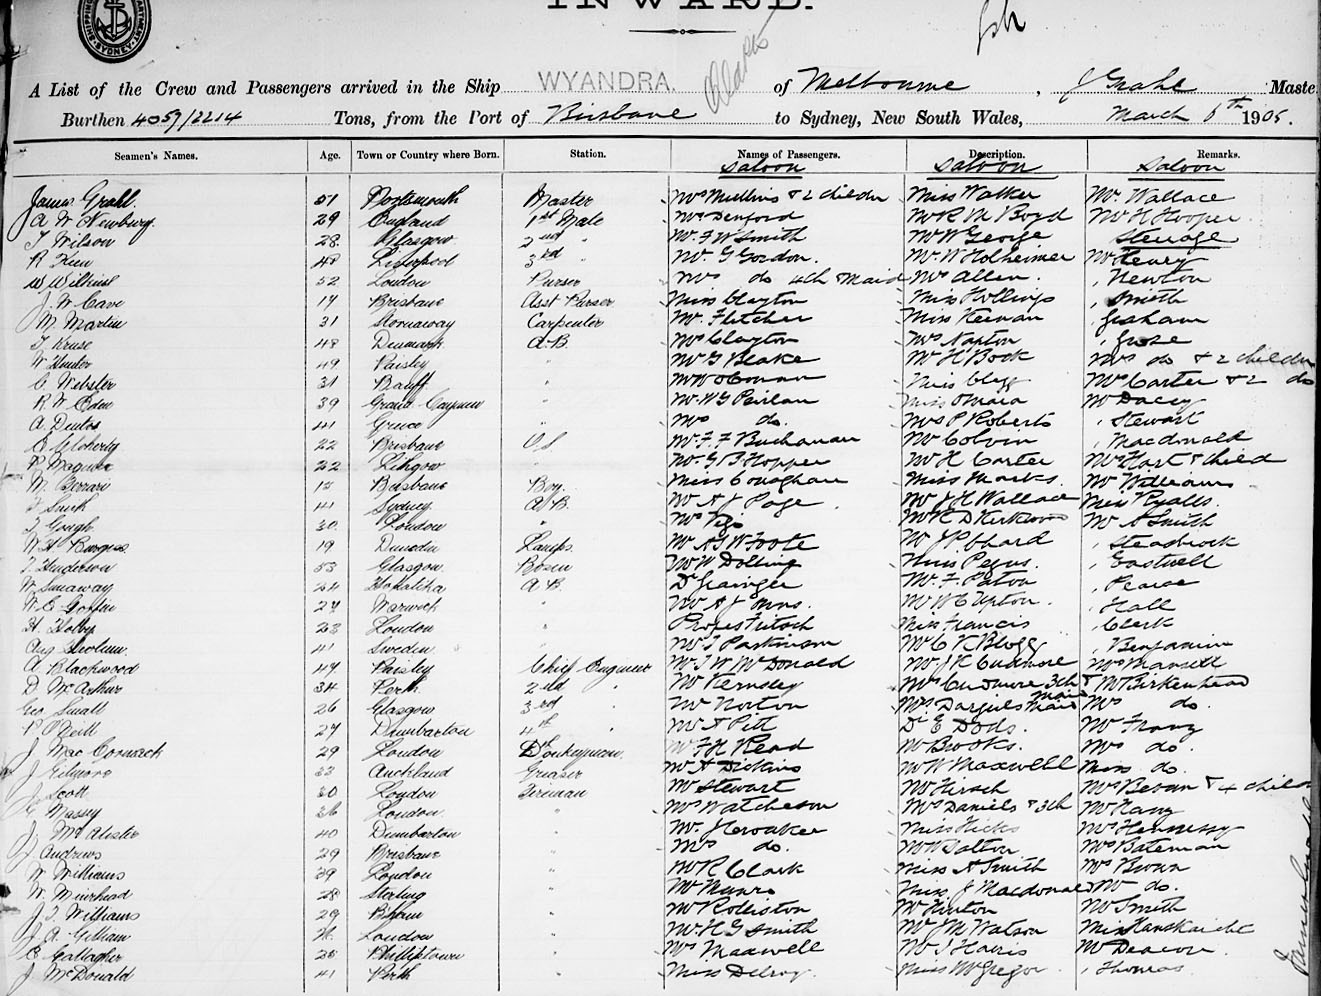 INWARD.
SHIPPING DEPARTMENT SYDNEY
A List of the Crew and Passengers arrived in the Ship WYANDRA. of Melbourne, J Grahl Maste
Burthen 4059/2214 Tons, from the Port of Brisbane to Sydney, New South Wales, March 6th 1905.
Seamen's Names. Age. Town or Country where Born. Station. Names of Passengers. Description. Remarks.
Saloon Saloon Saloon
James Grahl 51 Portsmouth Master Mrs Mullins & 2 childn Miss Walker Mr. Wallace
A W Newburg 29 England 1st Mate Mr R M Boyd Mr H Hooper
T Wilson 28 Glasgow 2nd " Mr. F W Smith Mr W George Steerage
R 48 Liverpool 3rd " Mr. G Gordon Mr. W Holheimer Mr Henry
W Wilkins 52 London Purser Mrs do 4ch & Maid Mrs Allen , Newton
J. W. Cave 19 Brisbane Asst Purser Miss Clayton Miss Hollings , Smith
M. Martin 31 Stornaway Carpenter Mr. Fletcher Miss Keenan , Graham
T Kruse 48 Denmark A.B. Mr Clayton Mrs Norton , Grose
W Hunter 49 Paisley " Mr G Blake Mr H Bock Mrs do & 2 childn
C. Webster 31 Banff " Miss Clegg Mrs Carter & 2 do
R. W. Eden 39 Grand Cayman " Mr W G Mr Dacey
A. 41 Greece " Mrs do. Mrs P Roberts , Stewart
22 Brisbane O.S Mr. F. F Buchanan Mr Colvin , Macdonald
P. Maguire 22 Lithgow " Mr. G B Hopper Mr H Carter Mr Hart & child
M. Brisbane Boy Miss Conaghan Miss Marks. Mr Williams
Smith 41 Sydney A B. Mr A J Page Mr J H Wallace Miss Ryalls
J. Gough 30 London " Mr R D Mr A Smith
W. H. Burgess 19 Dunedin Lamps Mr A W Foote
T Henderson 53 Glasgow Bosun Mr W Dolling Miss , Eastwell
W 24 Hokatika A B. Dr Grainger Mr. F. Paton , Pearce
27 Warwick " Mr A J Mr W C Upton , Hall
H. Holby 23 London " Miss Francis , Clark
Aug 41 Sweden " Mr J Parkinson , Benjamin
A Blackwood 47 Paisley Chief Engineer Mr J W McDonald Mr J K Cudmore Mrs Mansell
D McArthur 34 Perth 2nd " Mr Kernsley Mrs Cudmore 3ch & Maid Mr Birkenhead
Geo Small 26 Glasgow 3rd " Mr Norton Maid Mrs do.
P O'Neill 27 Dumbarton 4th " Mr A Pitt Dr E Dods. Mr
J. Mac Cormack 29 London Donkeyman Mr F H Read Mr Brooks. Mrs do.
J Gilmore 33 Auckland Greaser Mr A Dickins Mr W Maxwell Miss do.
J Scott 30 London Fireman Mr Stewart Mr Hirsch Mrs Bevan & 4 childn
Massey 36 London " Mrs Watcheson Mrs Daniels & 3ch
J. McAlester 40 Dumbarton " Mr. J Miss Hicks Mrs Hennessy
J Andrews 29 Brisbane " Mrs do. Mr W Dalton Mrs Bateman
W Williams 39 London " Mr R Clark Miss A Smith Mrs Brown
W. Muirhead 28 Sterling " Mr Munro Miss J Macdonald Mr do.
J. T. Williams 29 " Mr Rolliston Mr Hinton Mr Smith
J A. Gillham London " Mr H G Smith Mr J M Watson Miss
C Gallagher 38 Philliptown " Mrs Maxwell Mr J Harris Mr Deacon
J McDonald 41 Perth " Miss Delroy. Miss McGregor , Thomas